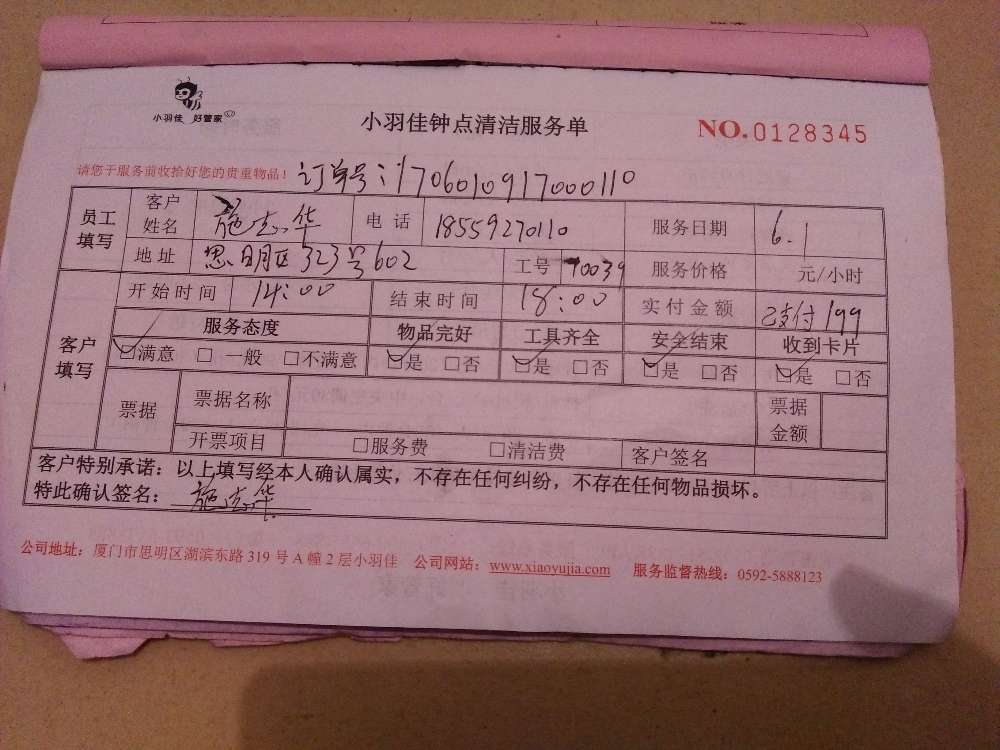 小羽佳 好管家
小羽佳钟点清洁服务单
NO.0128345
请您于服务前收拾好您的贵重物品！ 订单号:1706010917000110
员工填写 客户姓名 施志华 电话 18559270110 服务日期 6.1
地址 思明区323号602 工号 70039 服务价格 元/小时
客户填写 开始时间 14:00 结束时间 18:00 实付金额 已支付199
服务态度 物品完好 工具齐全 安全结束 收到卡片
☑满意 □一般 □不满意 ☑是 □否 ☑是 □否 ☑是 □否 ☑是 □否
票据 票据名称 票据金额
开票项目 □服务费 □清洁费 客户签名
客户特别承诺：以上填写经本人确认属实，不存在任何纠纷，不存在任何物品损坏。
特此确认签名：施志华
公司地址：厦门市思明区湖滨东路 319 号 A 幢 2 层小羽佳 公司网站：www.xiaoyujia.com 服务监督热线：0592-5888123